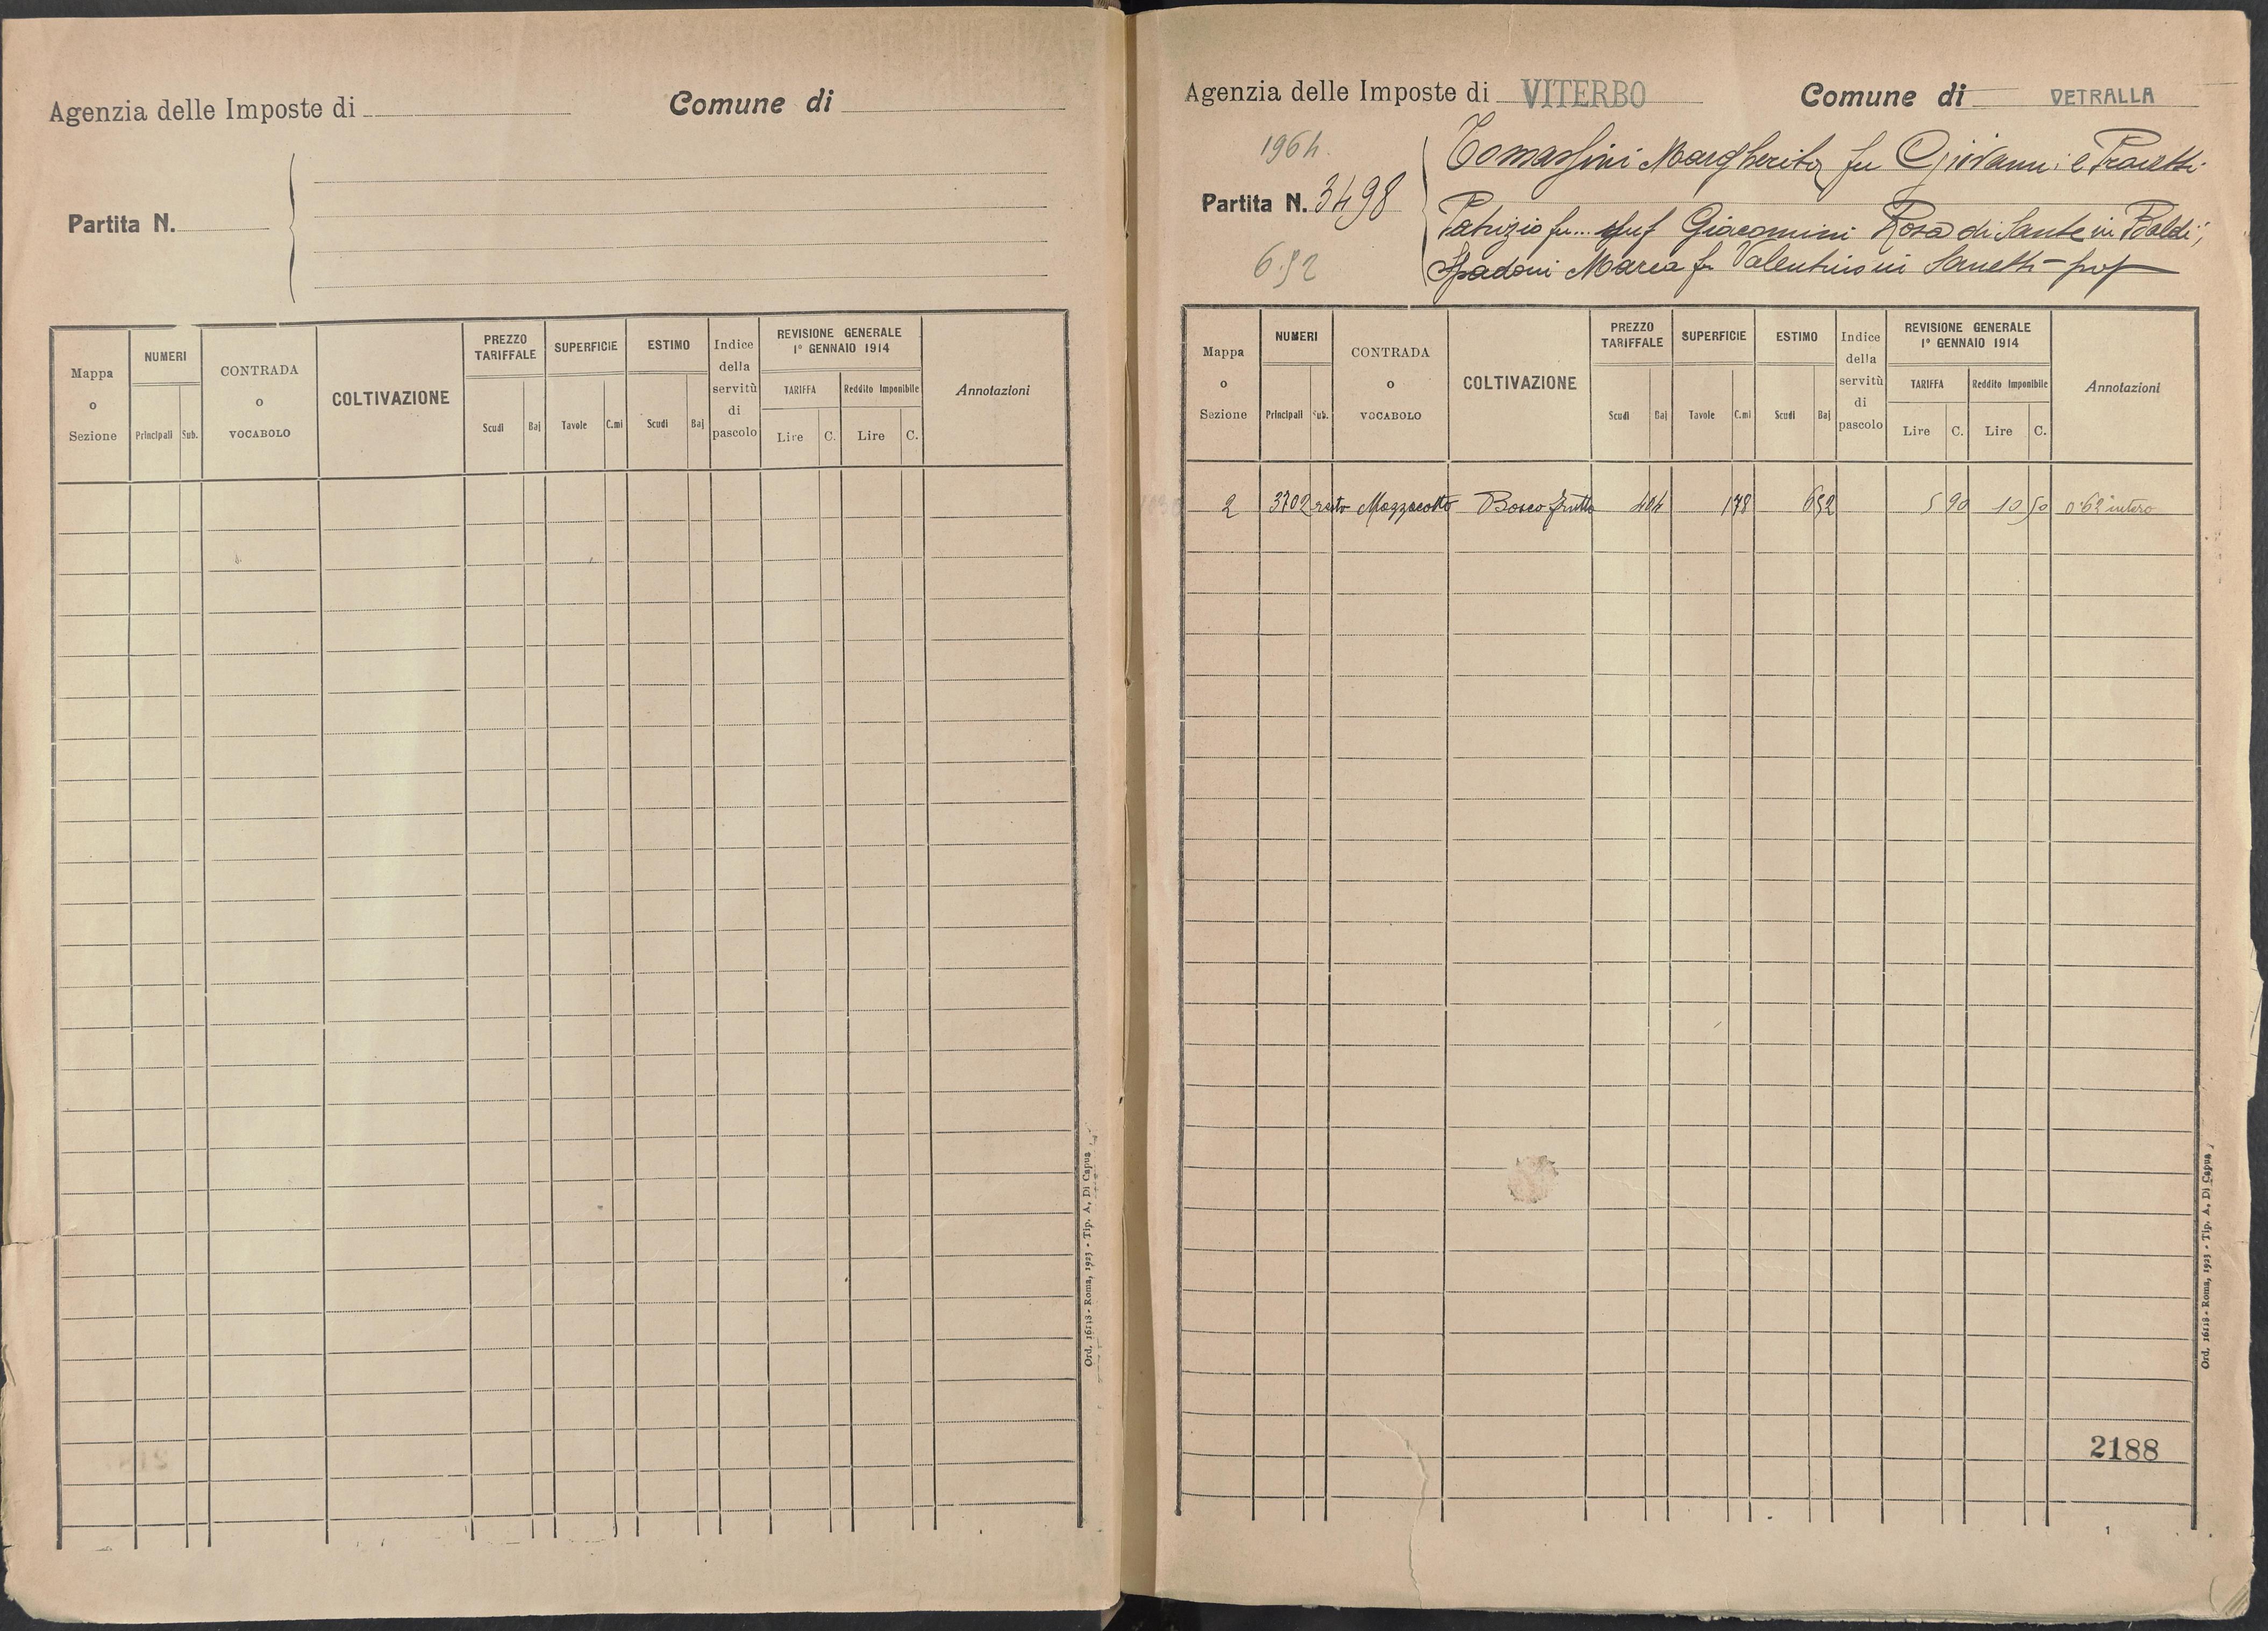 Agenzia delle Imposte di
Comune di
Partita N.
Mappa o Sezione
NUMERI
Principali Sub.
CONTRADA o VOCABOLO
COLTIVAZIONE
PREZZO TARIFFALE
Scudi Baj
SUPERFICIE
Tavole C.mi
ESTIMO
Scudi Baj
Indice della servitù di pascolo
REVISIONE GENERALE
1° GENNAIO 1914
TARIFFA
Lire C.
Reddito Imponibile
Lire C.
Annotazioni
Ord. 16118 - Roma, 1923 - Tip. A. Di Capua
Agenzia delle Imposte di VITERBO
Comune di VETRALLA
1964
Partita N. 3498
6.52
Tomassini Margherita fu Giovanni e
Patrizio fu... Giacomini Rosa di Sante in Baldi,
Spadoni Maria fu Valentino in
Mappa o Sezione
NUMERI
Principali Sub.
CONTRADA o VOCABOLO
COLTIVAZIONE
PREZZO TARIFFALE
Scudi Baj
SUPERFICIE
Tavole C.mi
ESTIMO
Scudi Baj
Indice della servitù di pascolo
REVISIONE GENERALE
1° GENNAIO 1914
TARIFFA
Lire C.
Reddito Imponibile
Lire C.
Annotazioni
2 3702 resto Mazzacotto Bosco frutto 404 178 652 5 90 10 50 0.62 intero
2188
Ord. 16118 - Roma, 1923 - Tip. A. Di Capua